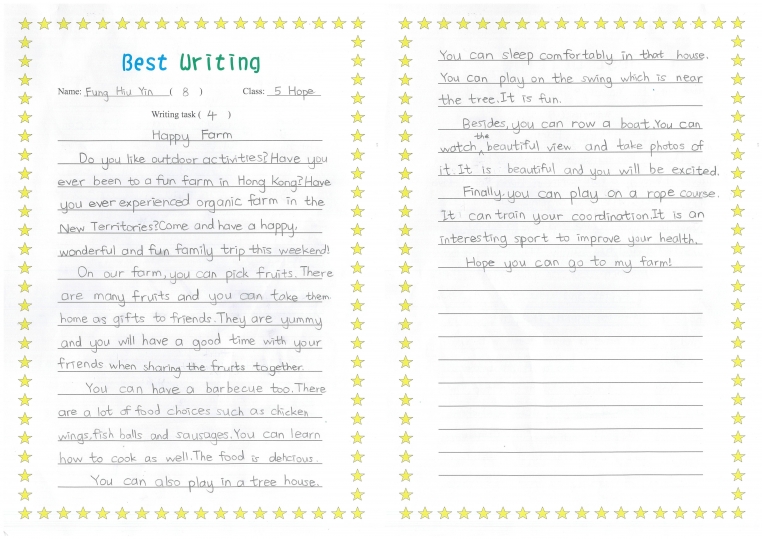 Best Writing
Name: Fung Hiu Yin ( 8 ) Class: 5 Hope
Writing task ( 4 )
Happy Farm
Do you like outdoor activities? Have you
ever been to a fun farm in Hong Kong? Have
you ever experienced organic farm in the
New Territories? Come and have a happy,
wonderful and fun family trip this weekend!
On our farm, you can pick fruits. There
are many fruits and you can take them
home as gifts to friends. They are yummy
and you will have a good time with your
friends when sharing the fruits together.
You can have a barbecue too. There
are a lot of food choices such as chicken
wings, fish balls and sausages. You can learn
how to cook as well. The food is delicious.
You can also play in a tree house.
You can sleep comfortably in that house.
You can play on the swing which is near
the tree. It is fun.
Besides, you can row a boat. You can
watch the beautiful view and take photos of
it. It is beautiful and you will be excited.
Finally, you can play on a rope course.
It can train your coordination. It is an
interesting sport to improve your health.
Hope you can go to my farm!